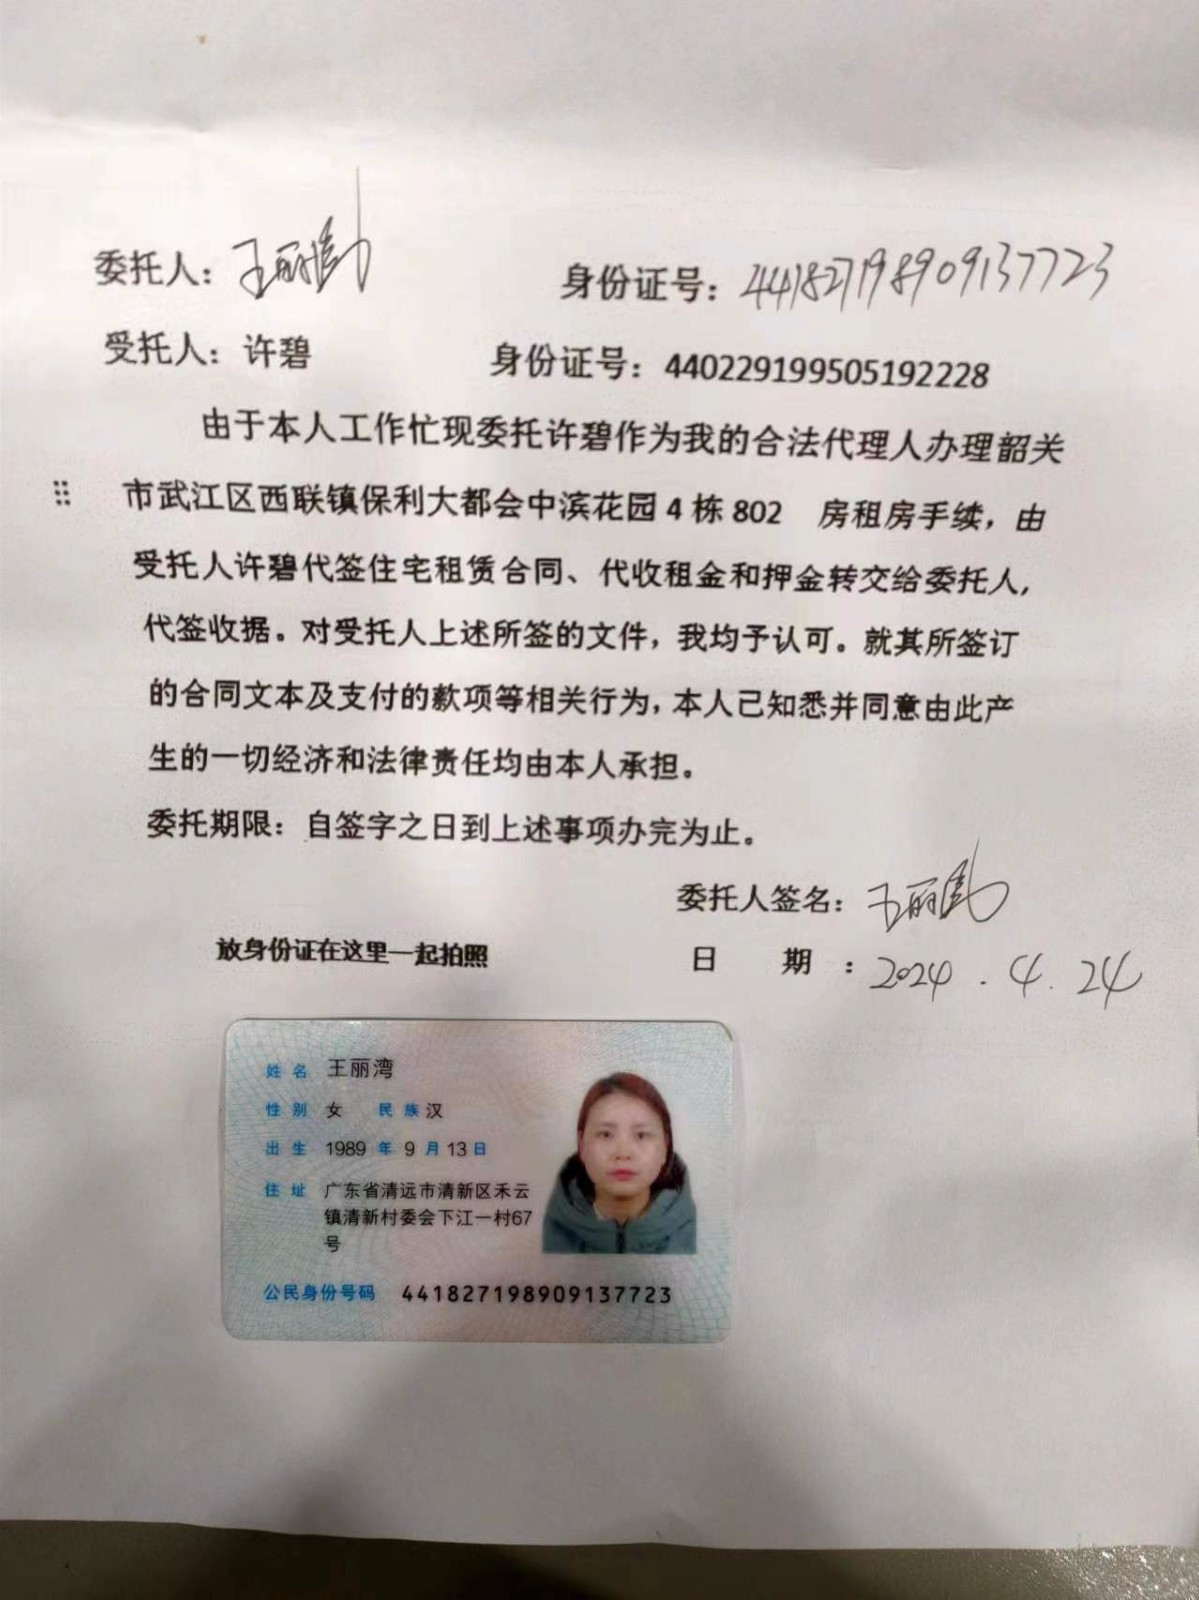 委托人：王丽湾 身份证号：441827198909137723
受托人：许碧 身份证号：440229199505192228
由于本人工作忙现委托许碧作为我的合法代理人办理韶关
市武江区西联镇保利大都会中滨花园4栋802 房租房手续，由
受托人许碧代签住宅租赁合同、代收租金和押金转交给委托人,
代签收据。对受托人上述所签的文件，我均予认可。就其所签订
的合同文本及支付的款项等相关行为，本人已知悉并同意由此产
生的一切经济和法律责任均由本人承担。
委托期限：自签字之日到上述事项办完为止。
委托人签名：王丽湾
放身份证在这里一起拍照
日 期 ：2024.4.24
姓名 王丽湾
性别 女 民族 汉
出生 1989 年 9 月 13 日
住址 广东省清远市清新区禾云
镇清新村委会下江一村67
号
公民身份号码 441827198909137723